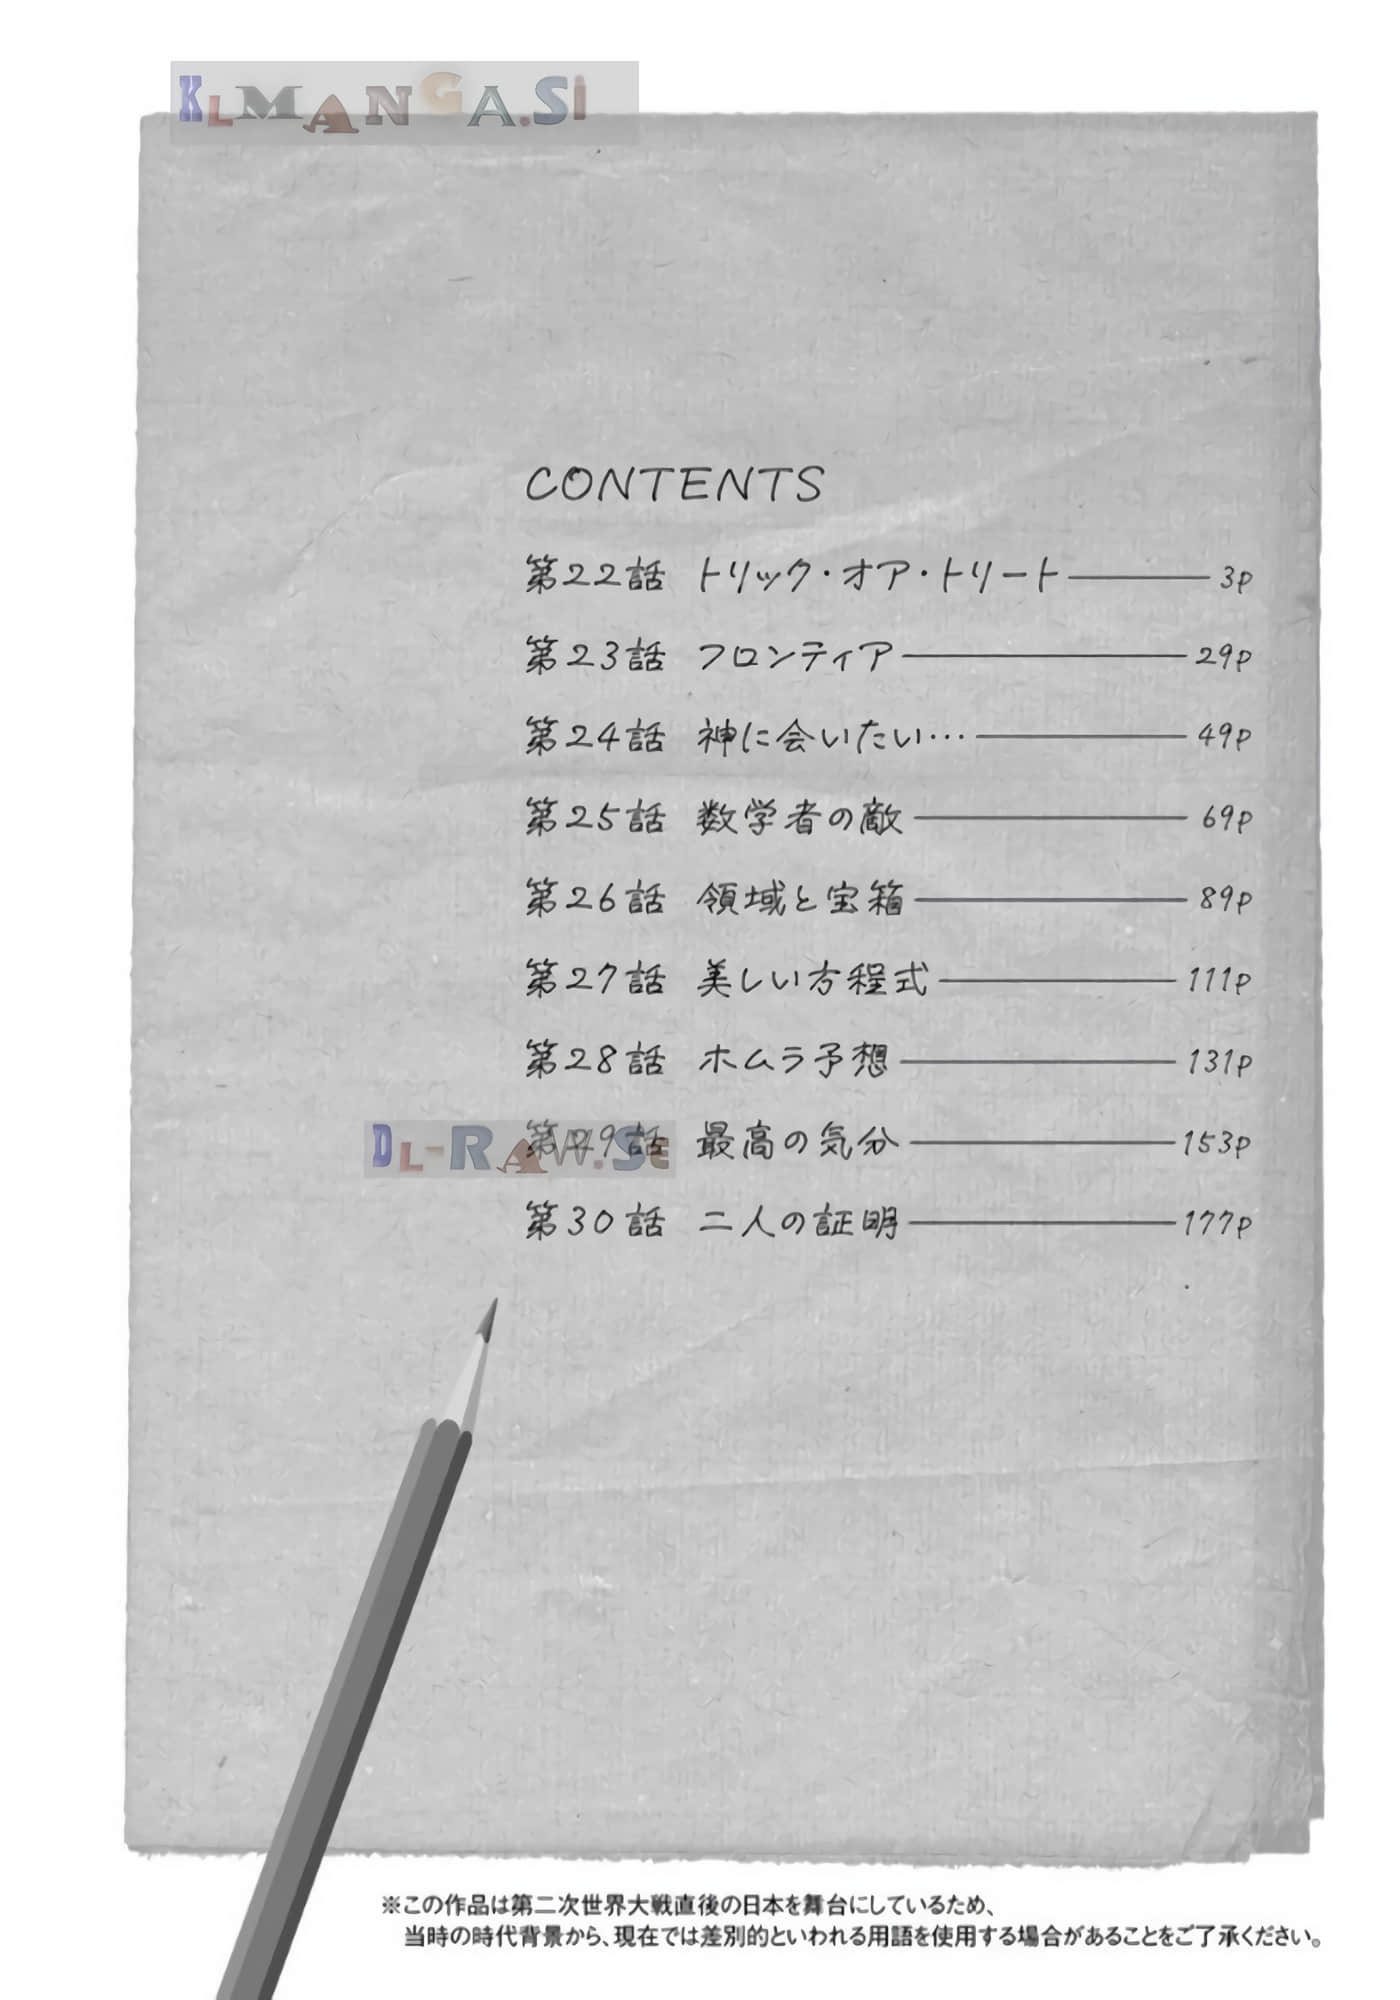 KLMANGA.SI
CONTENTS
第22話 トリック・オア・トリート 3p
第23話 フロンティア 29p
第24話 神に会いたい… 49p
第25話 数学者の敵 69p
第26話 領域と宝箱 89p
第27話 美しい方程式 111p
第28話 ホムラ予想 131p
第29話 最高の気分 153p
DL-RAW.SE
第30話 二人の証明 177p
※この作品は第二次世界大戦直後の日本を舞台にしているため、
当時の時代背景から、現在では差別的といわれる用語を使用する場合があることをご了承ください。